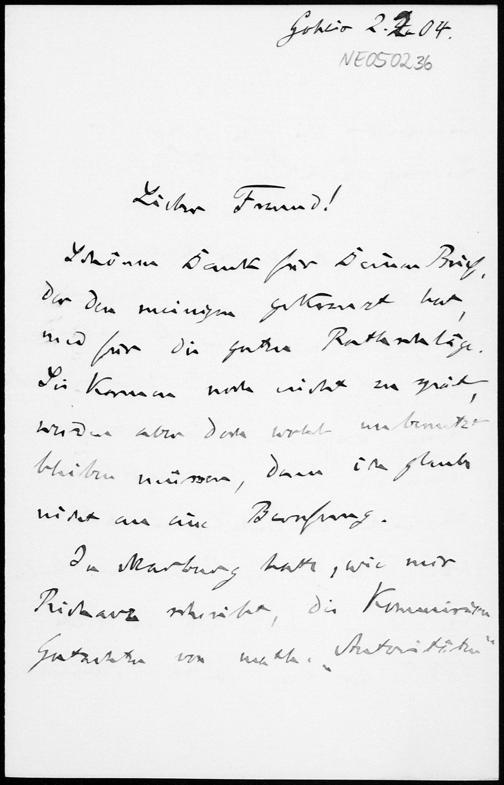 Gohlis 2.2.04.
NE050236
Lieber Freund!
Schönen Dank für Deinen Brief,
der den meinigen gekreuzt hat,
und für die guten Rathschläge.
Sie kommen noch nicht zu spät,
werden aber doch wohl unbenutzt
bleiben müssen, denn ich glaube
nicht an eine Berufung.
In Marburg hatte, wie mir
Richarz schreibt, die Kommission
Gutachten von math. „Autoritäten"